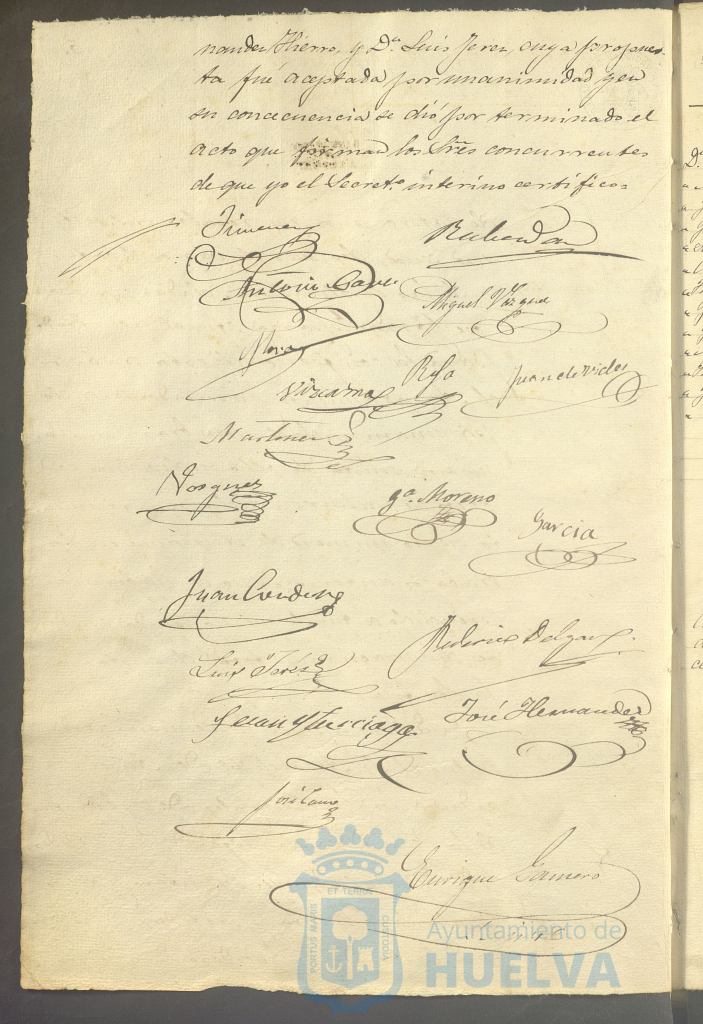 nandez Hierro, y Dn. Luis Perez, cuya propues
ta fué aceptada por unanimidad y en
su concecuencia se dió por terminado el
acto que firman los Sres concurrentes
de que yo el Secreto. interino certifico=
Jimenez
Antonio
Miguel Vazquez
Mora
Vizcarra
Juan de Vides
Martinez
Vazquez
ga. Moreno
Garcia
Juan Cordero
Federico Delgado
Luis Perez
Juan Yturriaga
José Hernandez
José
Enrique Gamero
ET TERRA
PORTUS MARIS
CUSTODIA
Ayuntamiento de
HUELVA